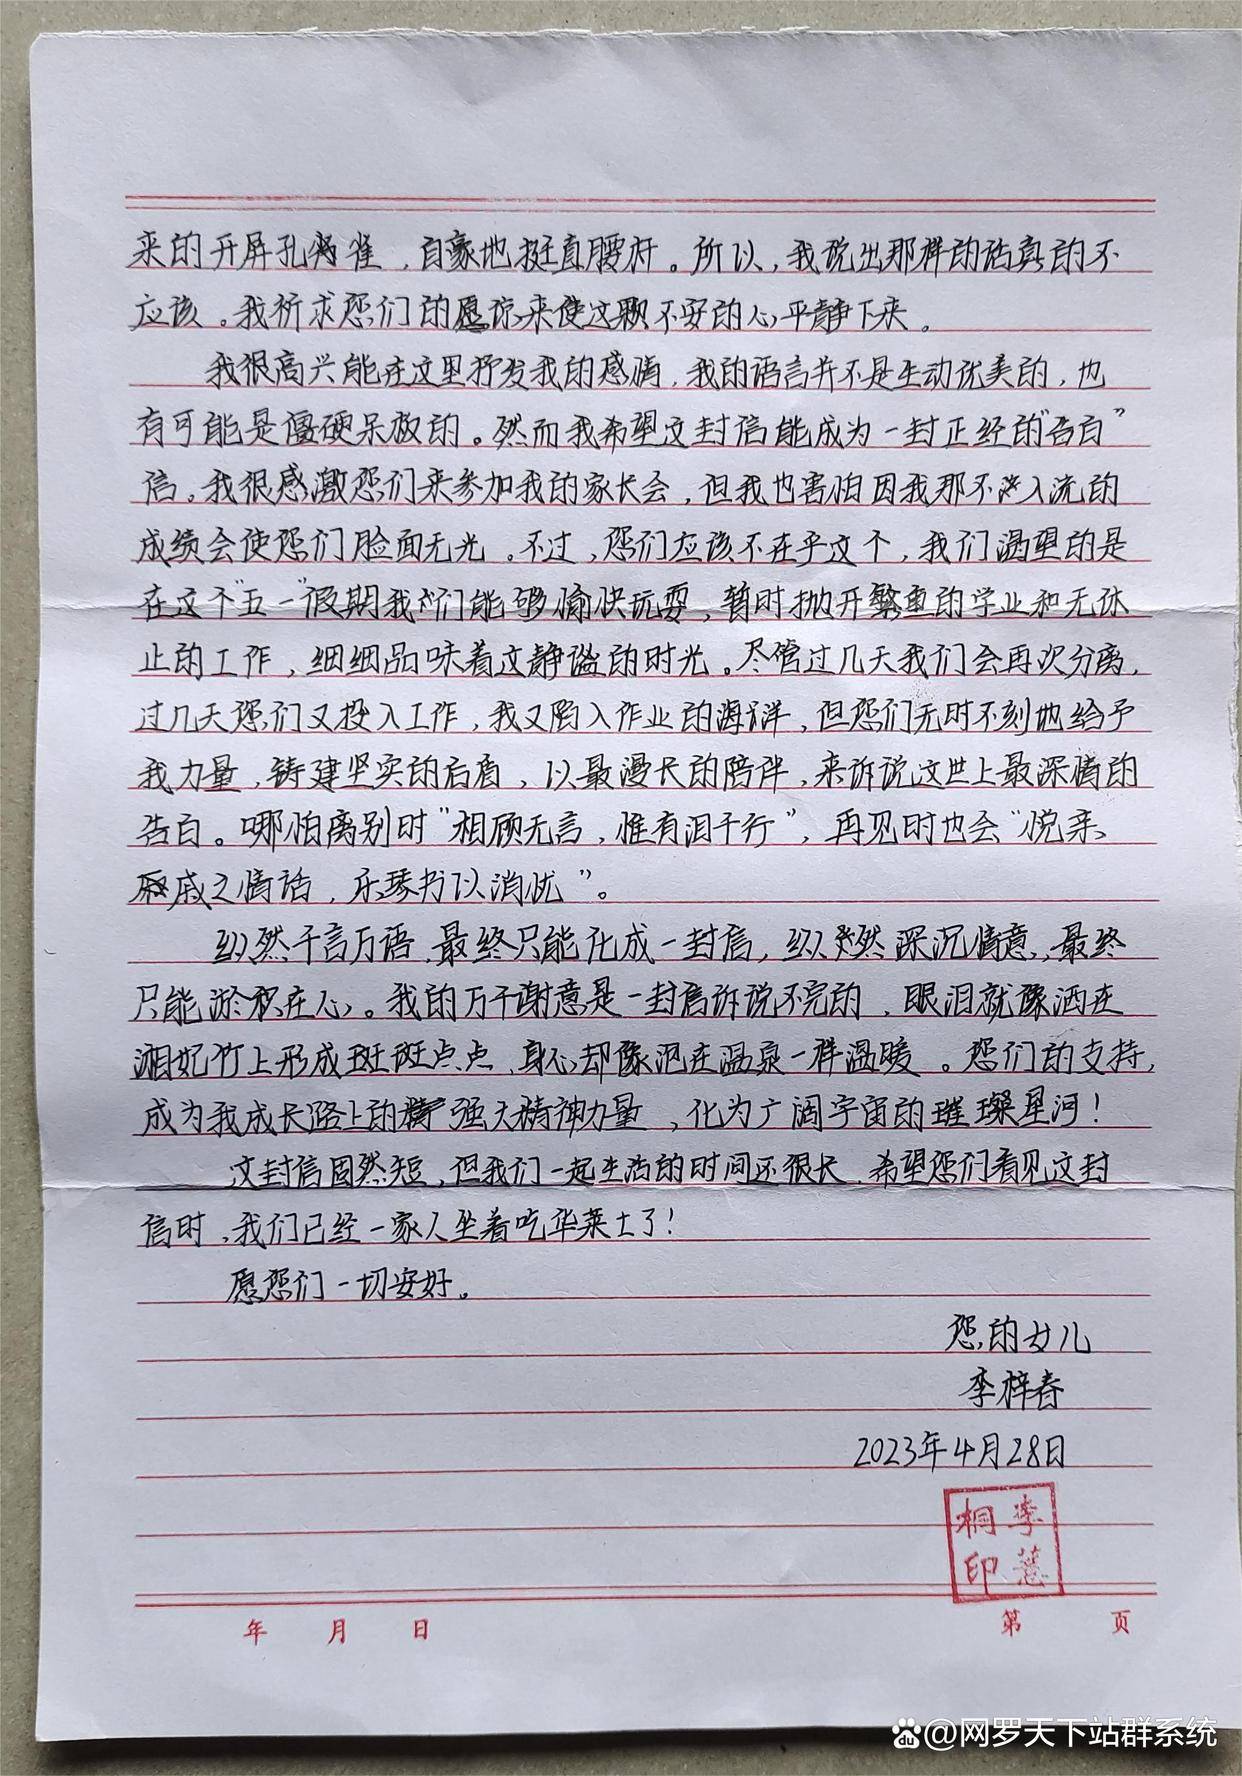 来的开屏孔雀，自豪地挺直腰杆。所以，我说出那样的话真的不
应该。我祈求您们的原谅来使这颗不安的心平静下来。
我很高兴能在这里抒发我的感情，我的语言并不是生动优美的，也
有可能是僵硬呆板的。然而我希望这封信能成为一封正经的“告白”
信。我很感激您们来参加我的家长会，但我也害怕因我那不入流的
成绩会使您们脸面无光。不过，您们应该不在乎这个，我们渴望的是
在这个“五一”假期我们能够愉快玩耍，暂时抛开繁重的学业和无休
止的工作，细细品味着这静谧的时光。尽管过几天我们会再次分离，
过几天您们又投入工作，我又陷入作业的海洋，但您们无时不刻地给予
我力量，铸建坚实的后盾，以最漫长的陪伴，来诉说这世上最深情的
告白。哪怕离别时“相顾无言，惟有泪千行”，再见时也会“悦亲
戚之情话，乐琴书以消忧”。
纵然千言万语，最终只能化成一封信，纵然深沉情意，最终
只能淤积在心。我的万千谢意是一封信诉说不完的，眼泪就像洒在
湘妃竹上形成斑斑点点，身心却像泡在温泉一样温暖。您们的支持，
成为我成长路上的强大精神力量，化为广阔宇宙的璀璨星河！
这封信固然短，但我们一起生活的时间还很长，希望您们看见这封
信时，我们已经一家人坐着吃华莱士了！
愿您们一切安好。
您的女儿
李梓春
2023年4月28日
李薏
桐印
年 月 日
第 页
@网罗天下站群系统